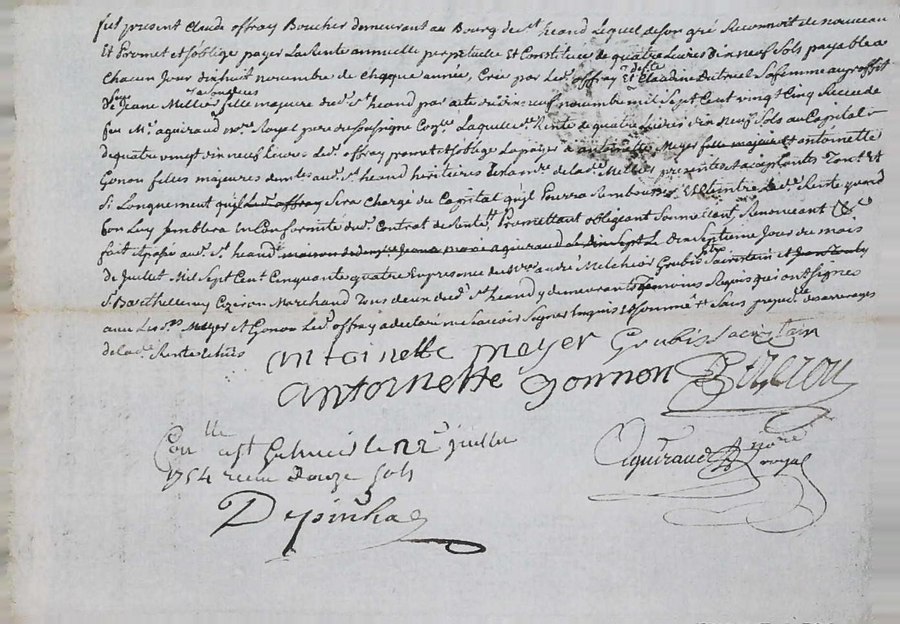 fut present Claude offray Boucher demeurant au Bourg de st heand Lequel de son gré Reconnoit de nouveau
Et Promet et soblige payer La Rente annuelle perpetuelle Et Constituée de quatre Livres dix neuf Sols payable a
Chacun Jour dix huit novembre de chaque année, Créé par Led. offray Et delle Claudine Dutriel Sa femme au proffit
de Jeane Mellier fille majeure dud. st heand par acte du dix neuf novembre mil Sept Cent vingt Cinq Receu de
feu Me. aguiraud nore. Royal pere du Soussigné Laquelle de. Rente de quatre Livres dix neuf Sols au Capital
de quatre vingt dix neuf Livres Led. offray promet et soblige Le payer à antoinette Meyer fille majeure et antoinette
Gonon filles majeures aud. st heand heritieres de Lade. Mellier presentes et aceptantes tant et
Si Longuement quil Led. offray Sera Chargé du Capital quil Pourra Rembourser Et Eteindre Lade. Rente quand
bon Luy Semblera En Conformité du Contrat de Promettant obligeant Soumettant Renonceant &c
fait et passé aud. st heand maison de aguiraud Le dix Sept Le dix Septieme Jour du mois
de Juillet Mil Sept Cent Cinquante quatre En presence de andré Melchior Grubis Sacristain et
Sr Barthellemy Cozeron Marchand tous deux dud. st heand y demeurants temoins Requis qui ont Signés
avec Les Meyer et Gonon Led. offray a declaré ne Scavoir Signer Enquis et Sommé et Sans prejudice des arrerages
de lade. Rente Echus
antoinette meyer Grubis Sacristain
antoinette gonnon
Conlle et Juillet
1754 receu douze sols
Aguiraud nore royal